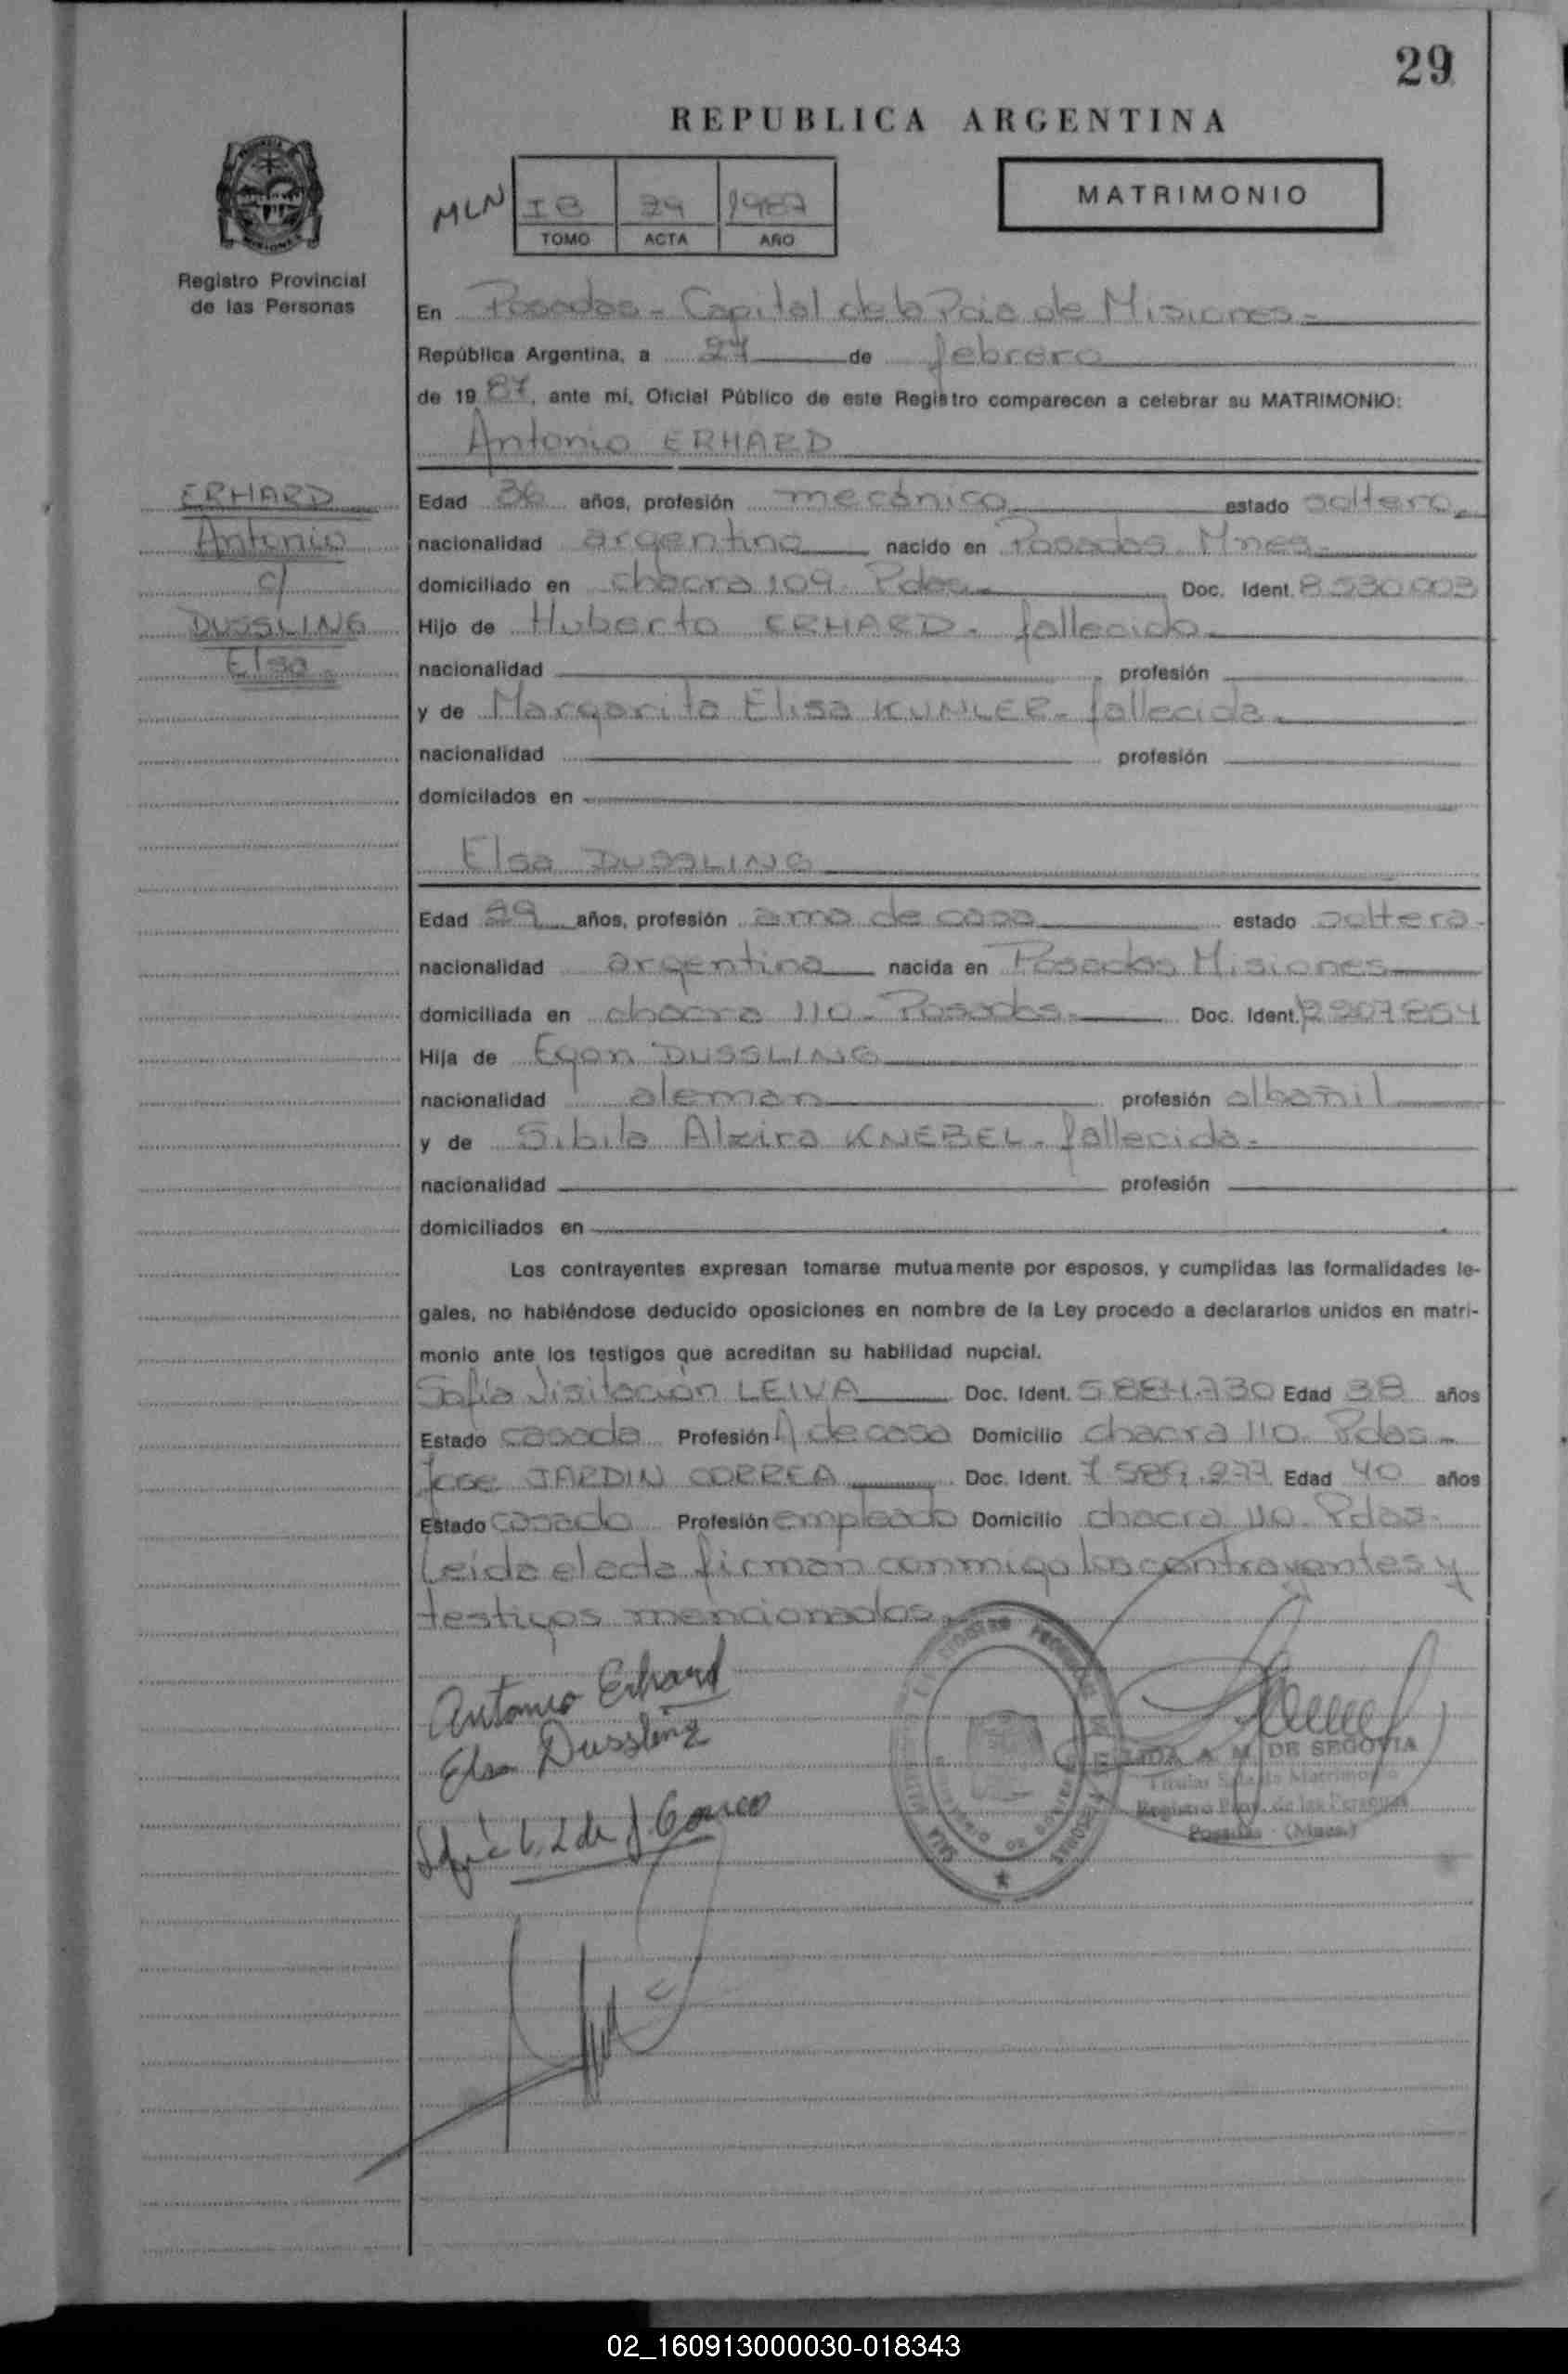 29
REPUBLICA ARGENTINA
MLN
IB 29 1987
TOMO ACTA AÑO
MATRIMONIO
Registro Provincial
de las Personas
En Posadas - Capital de la Pcia de Misiones -
República Argentina, a 27 de febrero
de 1987, ante mí, Oficial Público de este Registro comparecen a celebrar su MATRIMONIO:
Antonio ERHARD
ERHARD
Antonio
c/
DUSSLING
Elsa
Edad 36 años, profesión mecánico estado soltero
nacionalidad argentina nacido en Posadas Mnes
domiciliado en chacra 109 Pdas Doc. Ident. 8530003
Hijo de Huberto ERHARD - fallecido
nacionalidad profesión
y de Margarita Elisa KUNLER - fallecida
nacionalidad profesión
domicilados en
Elsa DUSSLING
Edad 29 años, profesión ama de casa estado soltera
nacionalidad argentina nacida en Posadas Misiones
domiciliada en chacra 110 - Posadas Doc. Ident.
Hija de Egon DUSSLING
nacionalidad aleman profesión albañil
y de Sibila Alzira KNEBEL - fallecida -
nacionalidad profesión
domiciliados en
Los contrayentes expresan tomarse mutuamente por esposos, y cumplidas las formalidades le-
gales, no habiéndose deducido oposiciones en nombre de la Ley procedo a declararlos unidos en matri-
monio ante los testigos que acreditan su habilidad nupcial.
Sofía Visitación LEIVA Doc. Ident. 5.884.730 Edad 38 años
Estado casada Profesión A de casa Domicilio chacra 110 Pdas -
Jose JARDIN CORREA Doc. Ident. 7.589.277 Edad 40 años
Estado casado Profesión empleado Domicilio chacra 110 Pdas -
Leida el acta firman conmigo los contrayentes y
testigos mencionados
Antonio Erhard
Elsa Dussling
A. M. DE SEGOVIA
Titular Sala de Matrimonio
Registro Prov. de las Personas
Posadas - (Mnes.)
02_160913000030-018343